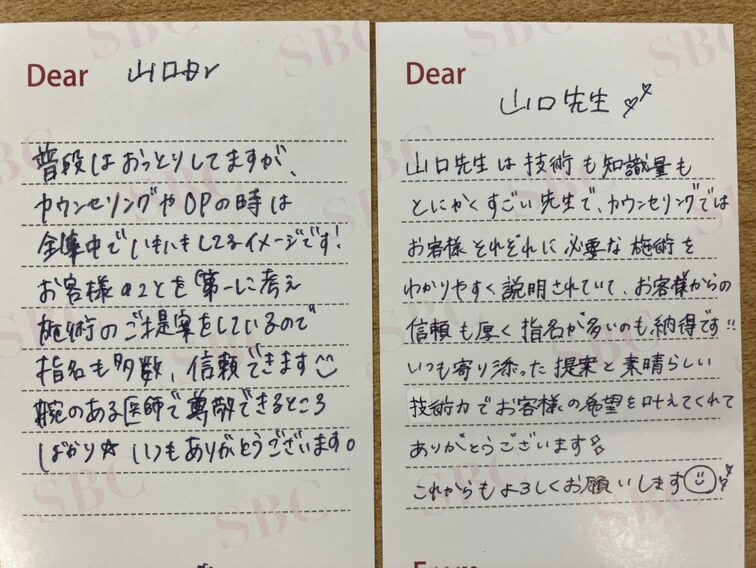 Dear 山口Dr
普段はおっとりしてますが、
カウンセリングやOPの時は
全集中でいきいきしてるイメージです!
お客様のことを第一に考え
施術のご提案をしているので
指名も多数、信頼できます
腕のある医師で尊敬できるところ
ばかり☆いつもありがとうございます。
SBC
Dear
山口先生
山口先生は技術も知識量も
とにかくすごい先生で、カウンセリングでは
お客様それぞれに必要な施術を
わかりやすく説明されていて、お客様からの
信頼も厚く指名が多いのも納得です!!
いつも寄り添った提案と素晴らしい
技術力でお客様の希望を叶えてくれて
ありがとうございます
これからもよろしくお願いします
SBC